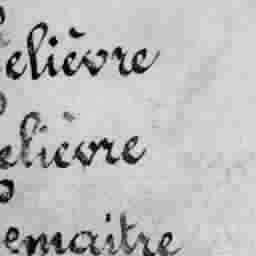 elièvre
elièvre
emaitre